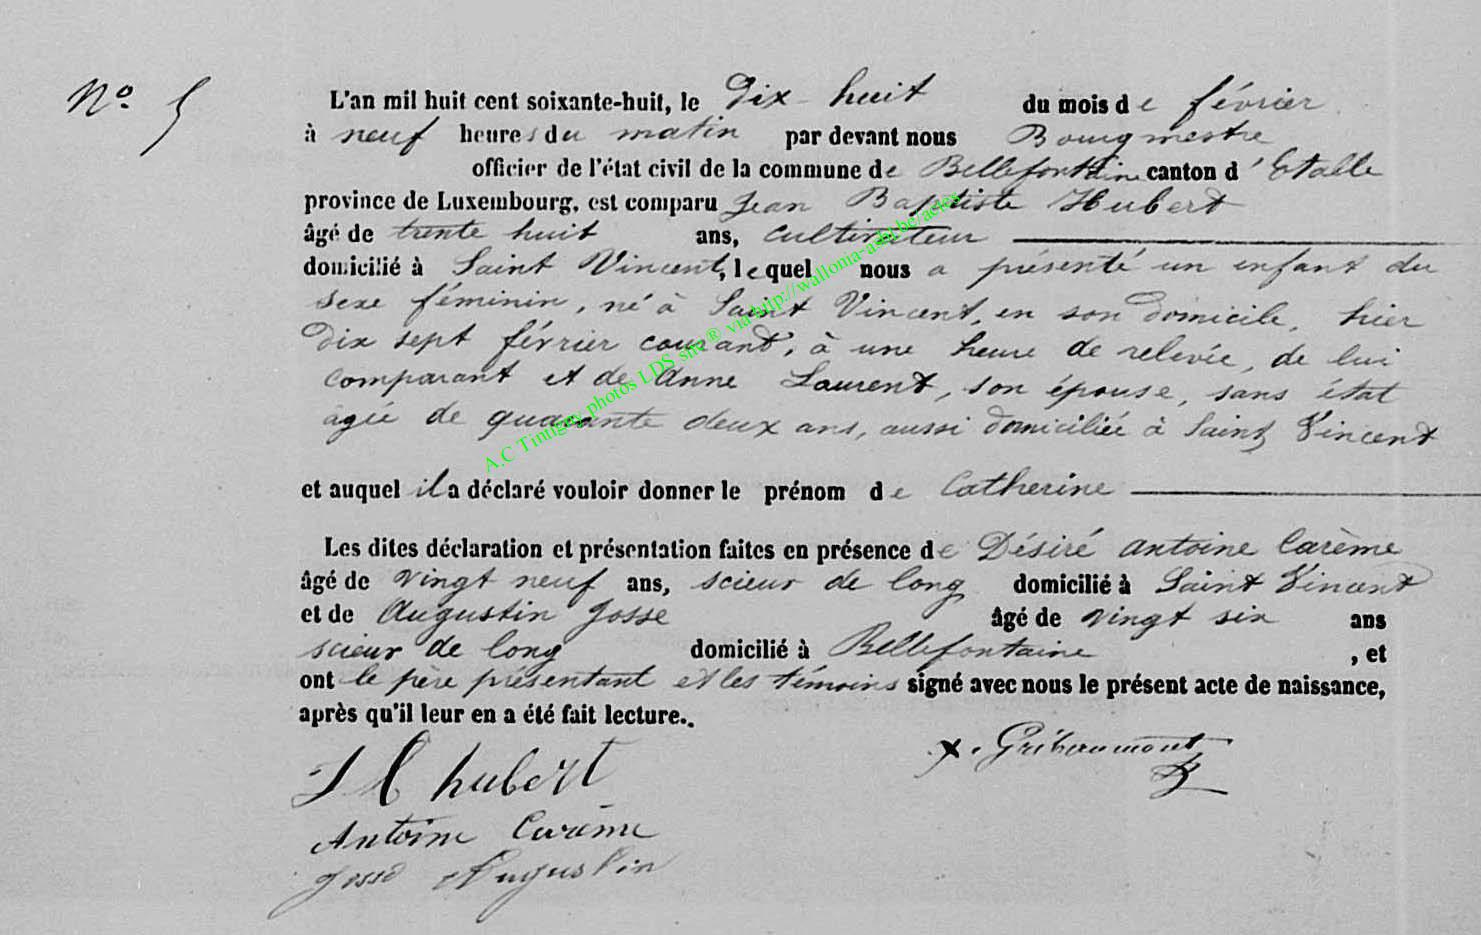 N° 5
L'an mil huit cent soixante-huit, le Dix-huit du mois de février
à neuf heures du matin par devant nous Bourgmestre
officier de l'état civil de la commune de Bellefontaine canton d'Etalle
province de Luxembourg, est comparu Jean Baptiste Hubert
âgé de trente huit ans, cultivateur
domicilié à Saint Vincent, lequel nous a présenté un enfant du
sexe féminin, né à Saint Vincent, en son domicile, hier
dix sept février courant, à une heure de relevée, de lui
comparant et de Anne Laurent, son épouse, sans état
agée de quarante deux ans, aussi domiciliée à Saint Vincent
et auquel il a déclaré vouloir donner le prénom de Catherine
Les dites déclaration et présentation faites en présence de Désiré Antoine Carème
âgé de vingt neuf ans, scieur de long domicilié à Saint Vincent
et de Augustin Josse âgé de vingt six ans
scieur de long domicilié à Bellefontaine, et
ont le père présentant et les témoins signé avec nous le présent acte de naissance,
après qu'il leur en a été fait lecture..
hubert
Gribaumont
Antoine Carème
Josse Augustin
A.C Tintigny photos LDS site ® via http://walloma-asbl.be/actes